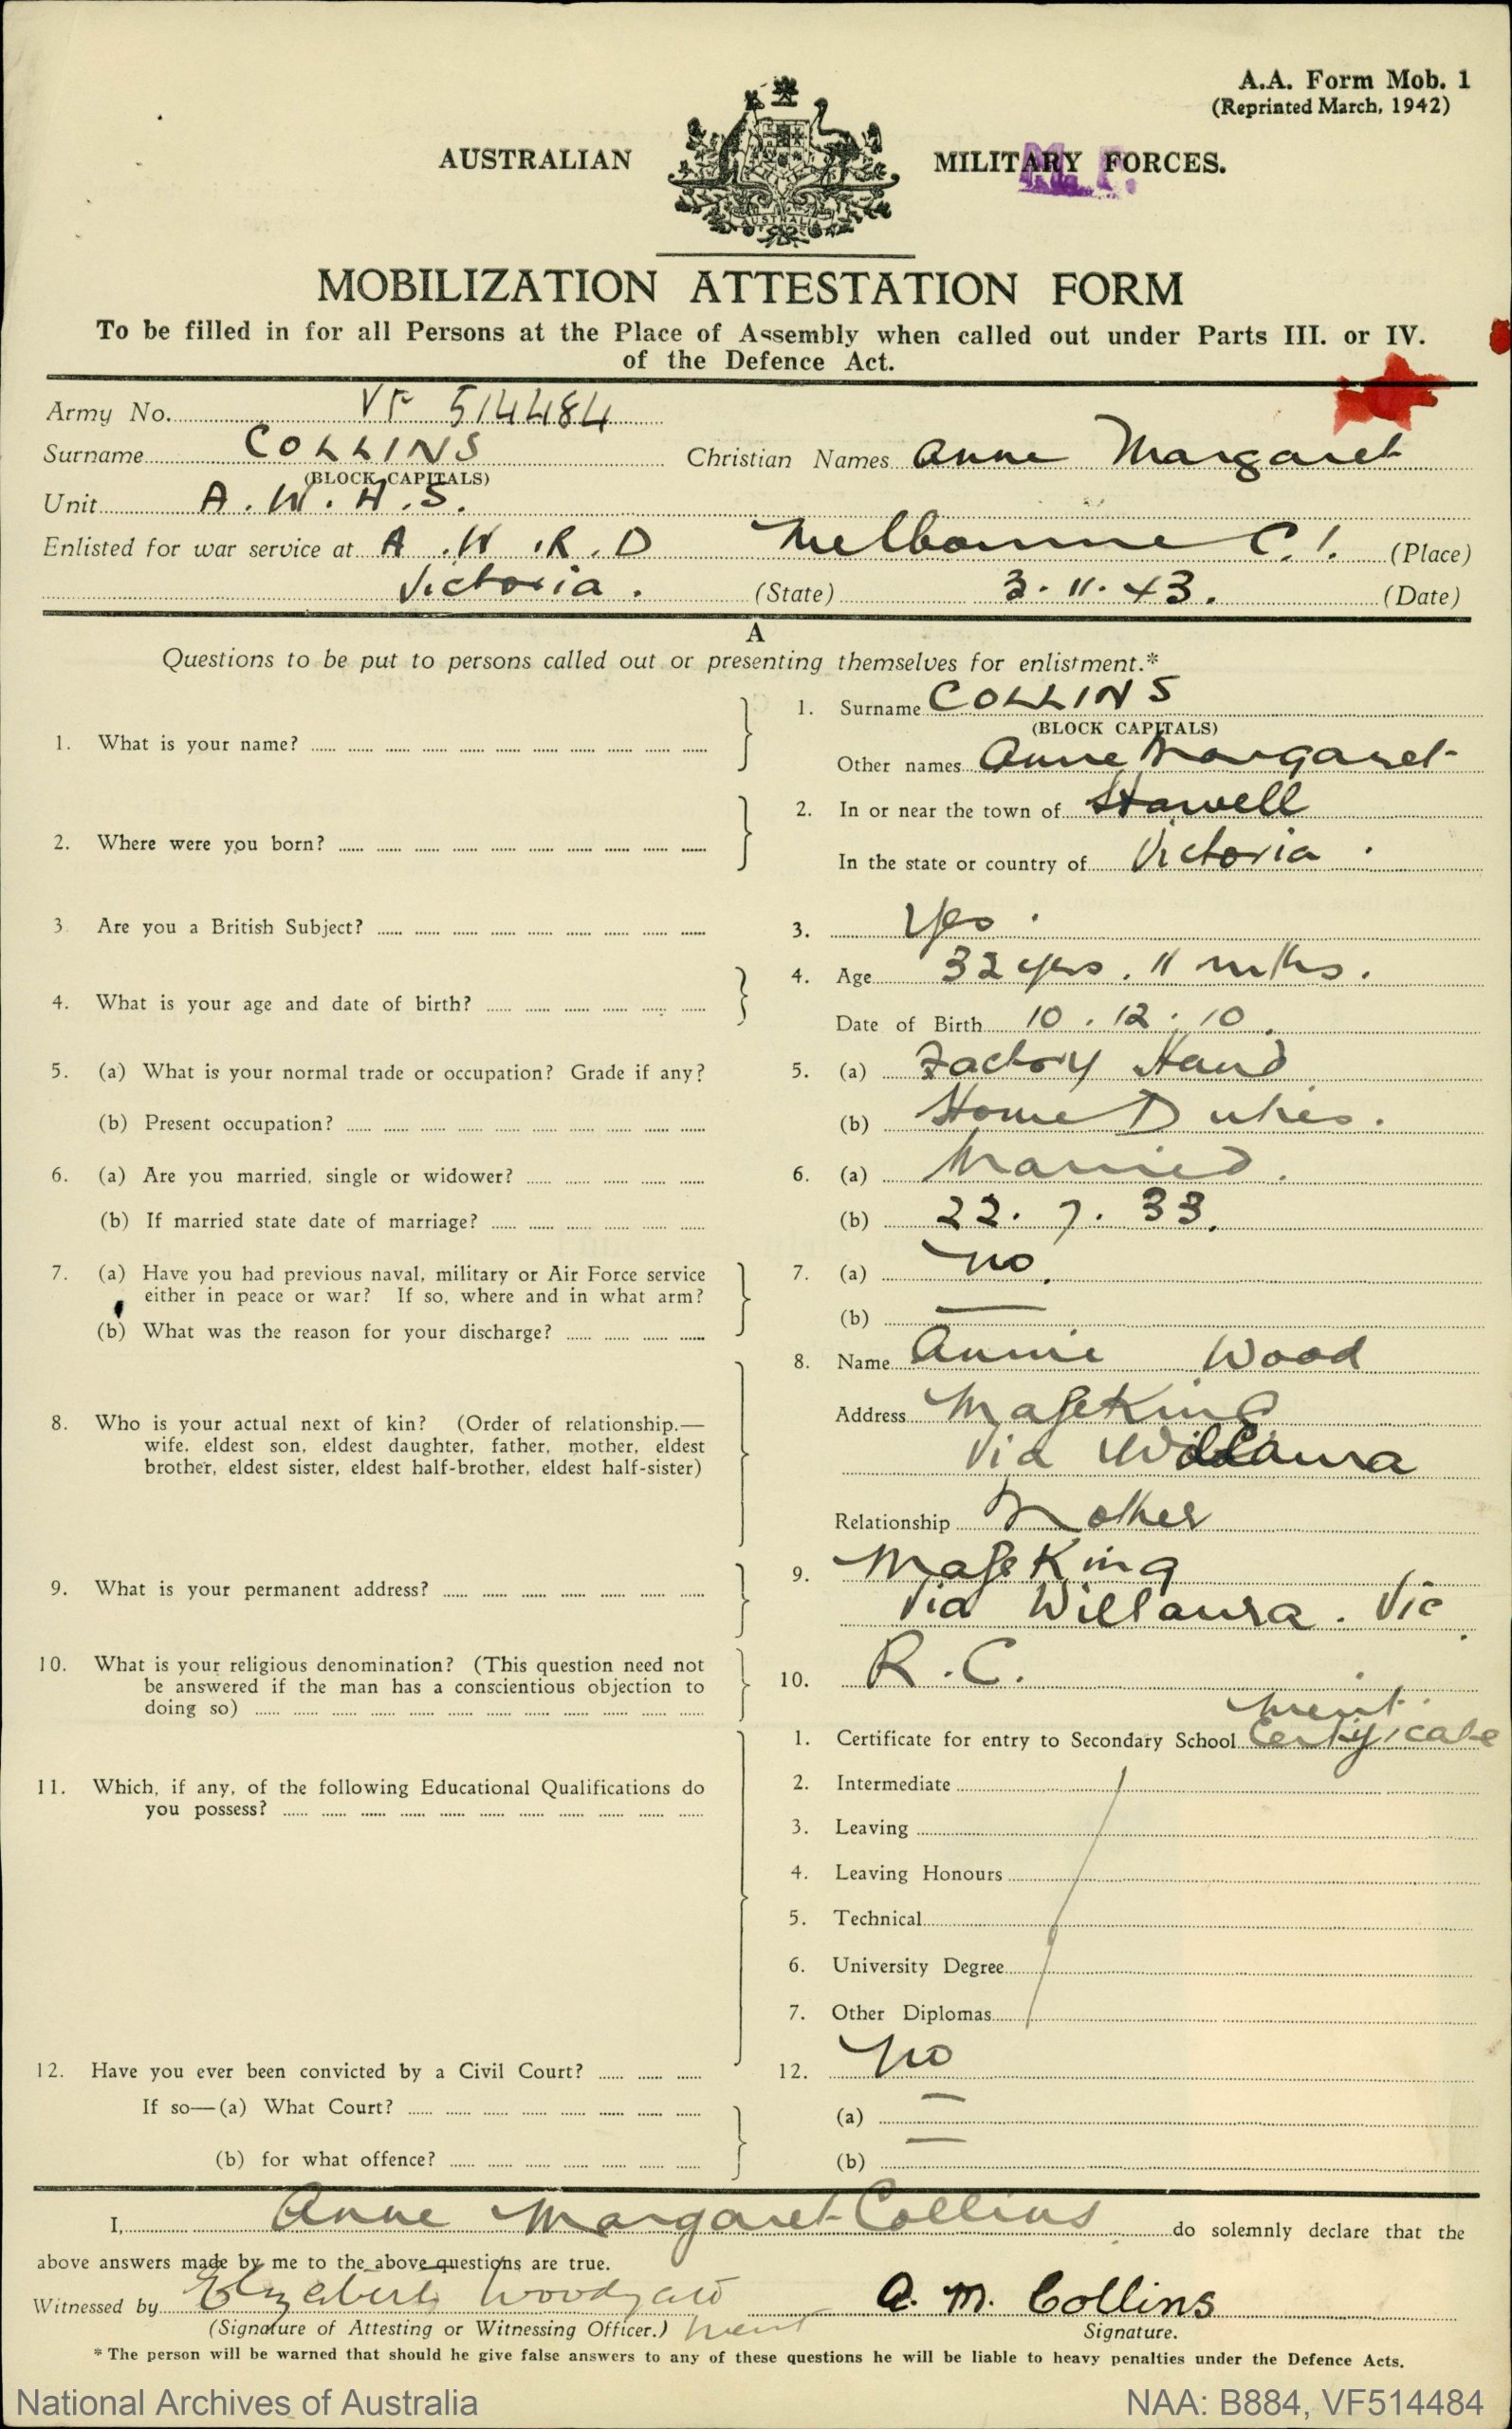 A.A. Form Mob. 1
(Reprinted March, 1942)
AUSTRALIAN MILITARY FORCES.
MOBILIZATION ATTESTATION FORM
To be filled in for all Persons at the Place of Assembly when called out under Parts III. or IV.
of the Defence Act.
Army No. VF 514484
Surname COLLINS Christian Names Anne Margaret
(BLOCK CAPITALS)
Unit A.W.A.S.
Enlisted for war service at A.W.R.D Melbourne C.1. (Place)
Victoria. (State) 3.11.43. (Date)
A
Questions to be put to persons called out or presenting themselves for enlistment.*
1. What is your name? 1. Surname COLLINS
(BLOCK CAPITALS)
Other names Anne Margaret
2. Where were you born? 2. In or near the town of Stawell
In the state or country of Victoria.
3. Are you a British Subject? 3. Yes.
4. What is your age and date of birth? 4. Age 32 yrs. 11 mths.
Date of Birth 10.12.10.
5. (a) What is your normal trade or occupation? Grade if any? 5. (a) Factory Hand
(b) Present occupation? (b) Home Duties.
6. (a) Are you married, single or widower? 6. (a) Married.
(b) If married state date of marriage? (b) 22.7.33.
7. (a) Have you had previous naval, military or Air Force service 7. (a) No.
either in peace or war? If so, where and in what arm?
(b) What was the reason for your discharge? (b) —
8. Name Annie Wood
8. Who is your actual next of kin? (Order of relationship.— Address MafeKing
wife, eldest son, eldest daughter, father, mother, eldest via Willaura
brother, eldest sister, eldest half-brother, eldest half-sister)
Relationship Mother
9. What is your permanent address? 9. MafeKing
Via Willaura. Vic.
10. What is your religious denomination? (This question need not 10. R.C.
be answered if the man has a conscientious objection to
doing so)
Merit
1. Certificate for entry to Secondary School Certificate
11. Which, if any, of the following Educational Qualifications do 2. Intermediate
you possess?
3. Leaving
4. Leaving Honours
5. Technical
6. University Degree
7. Other Diplomas
12. Have you ever been convicted by a Civil Court? 12. No
If so—(a) What Court? (a) —
(b) for what offence? (b) —
I, Anne Margaret Collins do solemnly declare that the
above answers made by me to the above questions are true.
Witnessed by Elizabeth A. M. Collins
(Signature of Attesting or Witnessing Officer.) Signature.
* The person will be warned that should he give false answers to any of these questions he will be liable to heavy penalties under the Defence Acts.
National Archives of Australia NAA: B884, VF514484